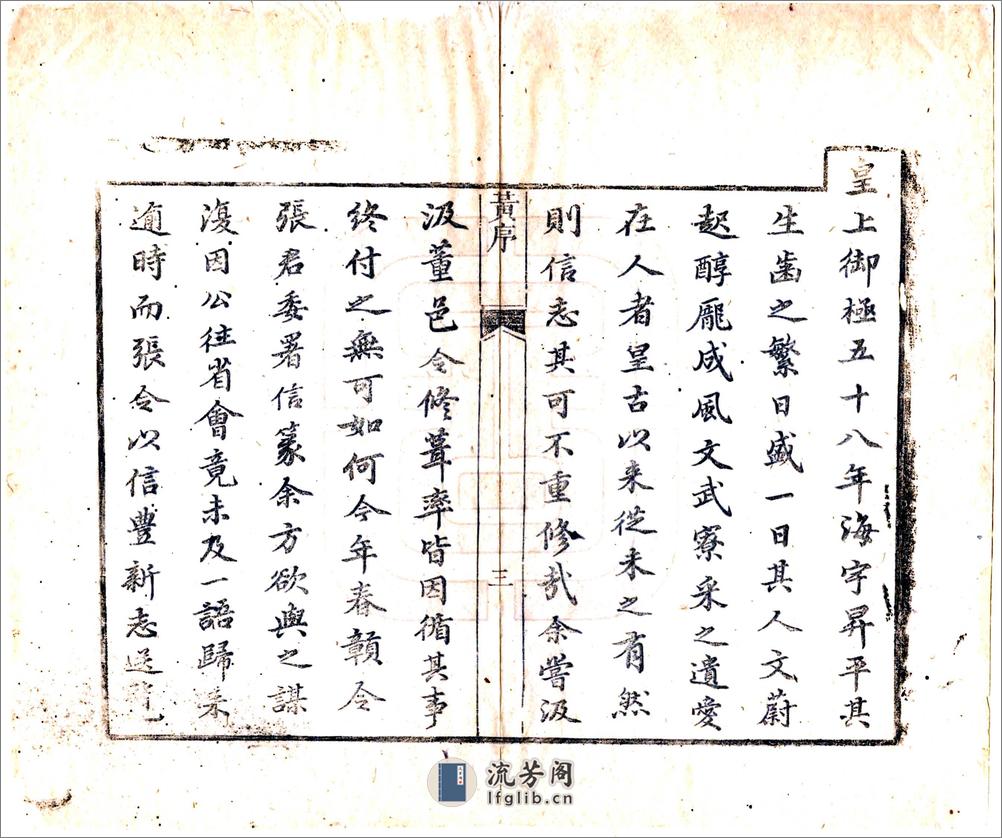 皇上御極五十八年海宇昇平其
生齒之繁日盛一日其人文蔚
起醇龐成風文武寮采之遺愛
在人者皇古以來從未之有然
則信志其可不重修哉余嘗汲
黃序
三
汲董邑令修葺率皆因循其事
終付之無可如何今年春贛令
張君委署信篆余方欲與之謀
復因公往省會竟未及一語歸來
逾時而張令以信豐新志送覽
流芳阁
lfglib.cn